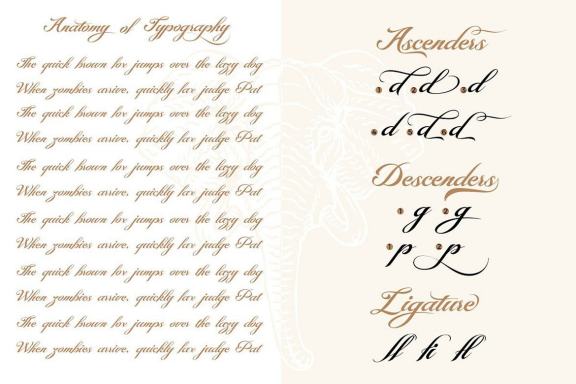 Anatomy of Typography
The quick brown fox jumps over the lazy dog
When zombies arrive, quickly fax judge Pat
The quick brown fox jumps over the lazy dog
When zombies arrive, quickly fax judge Pat
The quick brown fox jumps over the lazy dog
When zombies arrive, quickly fax judge Pat
The quick brown fox jumps over the lazy dog
When zombies arrive, quickly fax judge Pat
The quick brown fox jumps over the lazy dog
When zombies arrive, quickly fax judge Pat
The quick brown fox jumps over the lazy dog
When zombies arrive, quickly fax judge Pat
Ascenders
1 d 2 d 3 d
4 d 5 d 6 d
Descenders
1 g 2 g
1 p 2 p
Ligature